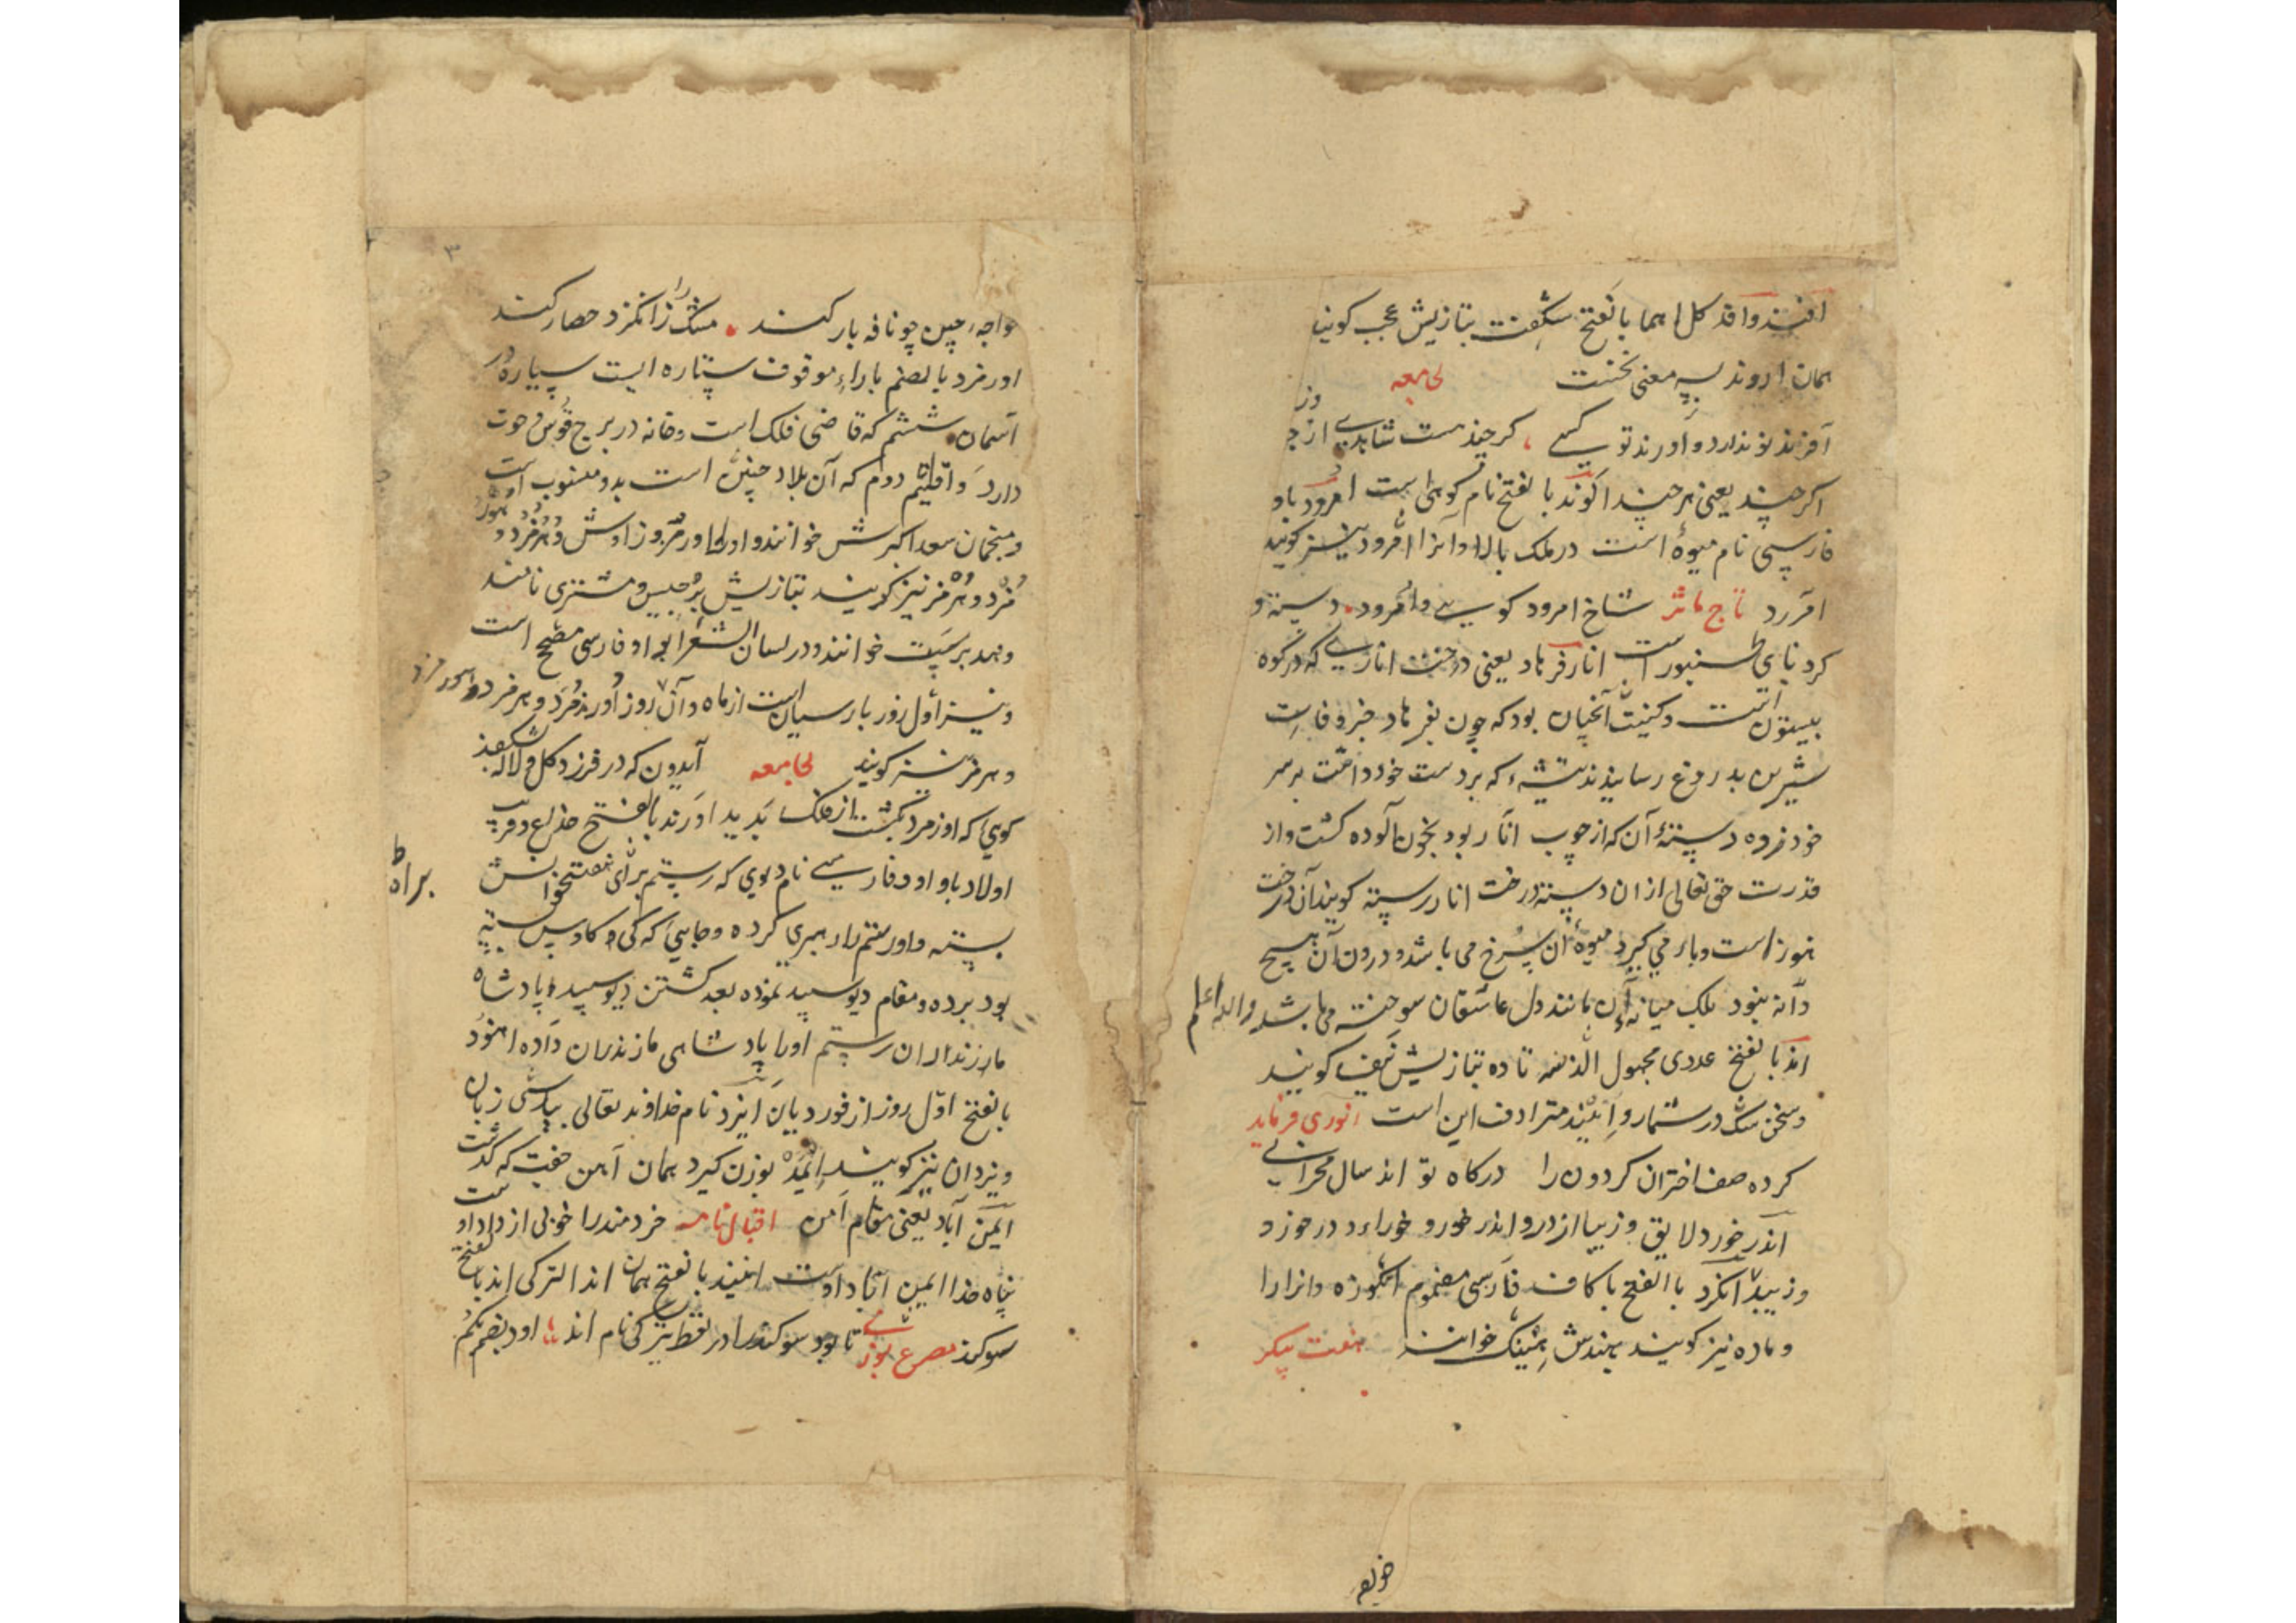 افند وافد کل اهما بالفتح شکفت بتازیش عجب کویند
همان اروند بسه معنی نخست لجامعه
آفرند تو ندارد و اورند تو کسی کر چند هست شاهدی از جز وز
اکر چند یعنی هر چند اکوند بالفتح نام کوهی است امرود باو
فارسی نام میوهٔ است در ملک بالا و آنرا امرود نیز کویند
امرود تاج ماثر شاخ امرود کویی و امرود دسته و
کرد نای طنبور است انار فرهاد یعنی درخت اناری که در کوه
بیستون است و کیفیت آنچنان بود که چون بفرهاد خبر وفات
شیرین بدروغ رسانیدند تیشه که بر دست خود داشت بر سر
خود زده دستهٔ آن که از چوب انار بود بخون آلوده کشت و از
قدرت حق تعالی از ان دسته درخت انار رسته کویند آن درخت
هنوز است و بار می کیرد میوهٔ آن سرخ می باشد و درون آن هیچ
دانه نبود بلک میانهٔ آن مانند دل عاشقان سوخته می باشد والله اعلم
اند بالفتح عددی مجهول از سه تا ده بتازیش نیف کویند
و سخن شک در شمار و انیند مترادف این است انوری فرماید
کرده صف اختران کردون را درکاه تو اند سال مجرایی
اندر خورد لایق و زیبا از در و اندر خور و خوراء و در خورد
و زیبد انکزد با الفتح با کاف فارسی مضموم انکوزه وانرارا
و ماده نیز کویند بهندش هینک خوانند هفت پیکر
خواجه
۳
خواجه چین چو نافه بار کند مشک را ز انکزد حصار کند
اورمزد بالضم باراء موقوف ستاره ایست سیاره در
آسمان ششم که قاضی فلک است و خانه در برج قوس و حوت
دارد و اقلیم دوم که آن بلاد چین است بدو منسوب است
و منجمان سعد اکبرش خوانند و اورا اورمز و زاوش و هرمزد و هور
مزد و هرمز نیز کویند بتازیش برجیس و مشتری نامند
و هند برسپت خوانند و در لسان الشعرا بواو فارسی مصحح است
و نیز اول روز پارسیان است از ماه و آن روز اورمزد و هرمزد
و هرمز نیز کویند لجامعه آیدون که در فرزد کل و لاله شکفد
کویی که اورمزد بکشت از فلک پدید اورند بالفتح خدع و فریب
اولاد باواو فارسی نام دیوی که رستم برای هفتخوانش براه
بسته و او رستم را رهبری کرده و جایی که کی کاوس بسته
بود برده و مقام دیو سپید نموده بعد کشتن دیو سپید و پادشاه
مازندران رستم اورا پادشاهی مازندران داده اهنود
بالفتح اول روز از فوردیان ایزد نام خداوند تعالی بپارسی زبان
ویزدان نیز کویند ایمد بوزن کیرد همان آهن جفت که کذشت
ایمن آباد یعنی مقام امن اقبال نامه خردمند را خوبی از داد اوست
پناه خدا ایمن آباد اوست انیند بالفتح همان اند الترکی اند بالفتح
سوکند مصرع بوزنی تا بود سوکند را در لفظ ترکی نام اند